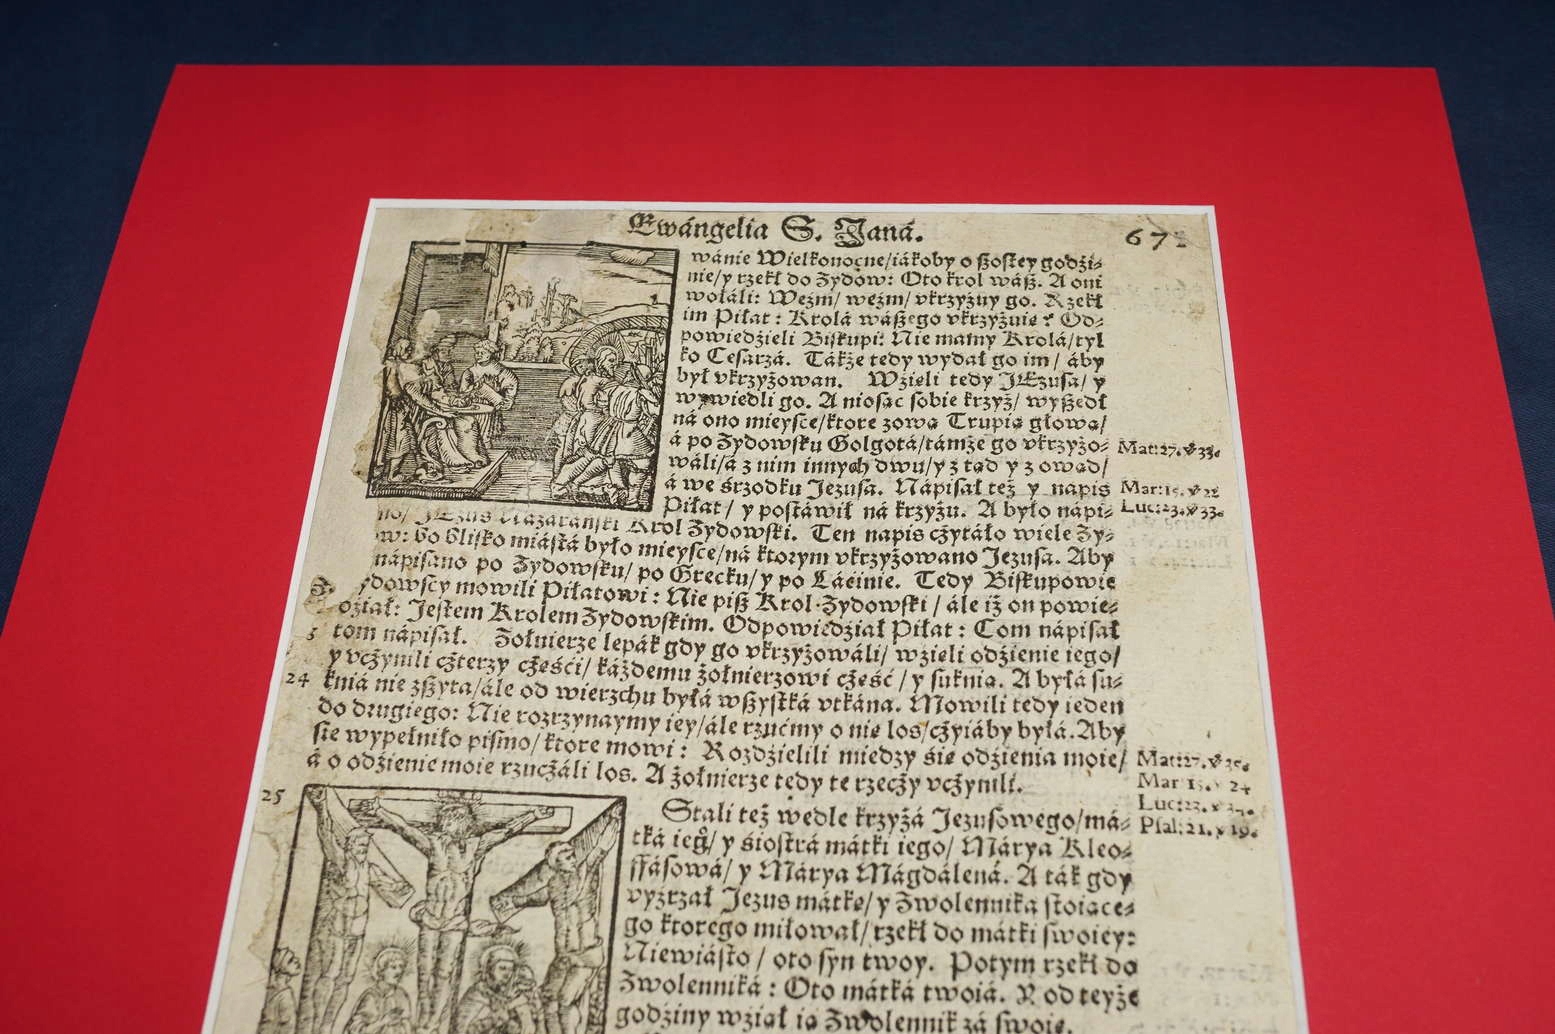 Ewángelia S. Janá.
67
wánie Wielkonocne/iákoby o ßostey godźi⸗
nie/y rzekł do Żydow: Oto krol wáß. A oni
wołáli: Weźmi/ weźmi/ vkrzyżuy go. Rzekł
im Piłat: Krolá wáßego vkrzyżuię? Od⸗
powiedźieli Biskupi: Nie mamy Krolá/tyl
ko Cesarzá. Tákże tedy wydał go im/ áby
był vkrzyżowan. Wźięli tedy JEzusa/ y
wywiedli go. A niosąc sobie krzyż/ wyßedł
ná ono mieysce/ktore zową Trupia głowá/
á po Żydowsku Golgotá/támże go vkrzyżo⸗
wáli/á z nim innych dwu/y z tąd y z owąd/
á we srzodku Jezusa. Nápisał też y napis
Piłat/ y postáwił ná krzyżu. A było nápi⸗
no/ JEzus Názáráński Krol Żydowski. Ten napis cżytáło wiele Ży⸗
ow: bo blisko miástá było mieysce/ná ktorym vkrzyżowano Jezusa. Aby
nápisano po Żydowsku/ po Grecku/y po Láćinie. Tedy Biskupowie
ydowscy mowili Piłatowi: Nie piß Krol Żydowski/ ále iż on powie⸗
dźiał: Jestem Krolem Żydowskim. Odpowiedźiał Piłat: Com nápisał
tom nápisał. Żołnierze lepák gdy go vkrzyżowáli/ wźięli odźienie iego/
y vcżynili cżterzy cżęści/ káżdemu żołnierzowi cżęść/y suknią. A byłá su⸗
24 kniá nie zßyta/ále od wierzchu byłá wßystká vtkána. Mowili tedy ieden
do drugiego: Nie rozrzynaymy iey/ále rzućmy o nię los/cżyiáby byłá. Aby
się wypełniło pismo/ktore mowi: Rozdźielili miedzy śię odźienia moie/
á o odźienie moie rzucżáli los. A żołnierze tedy te rzecży vcżynili.
Mat:27.v 33.
Mar:15.v 22
Luc:23.v 33.
Mat:27.v 35.
Mar 15.v 24
Psal:21.v 19.
25
Stali też wedle krzyżá Jezusowego/má⸗
tká iego/ y śiostrá mátki iego/ Márya Kleo⸗
ffásowá/ y Márya Mágdálená. A ták gdy
vyzrzał Jezus mátkę/y Zwolenniká stoiące⸗
go ktorego miłował/rzekł do mátki swoiey:
Niewiásto/ oto syn twoy. Potym rzekł do
Zwolenniká: Oto mátká twoiá. Y od teyże
godźiny wźiął ią Zwolennik zá swoię.